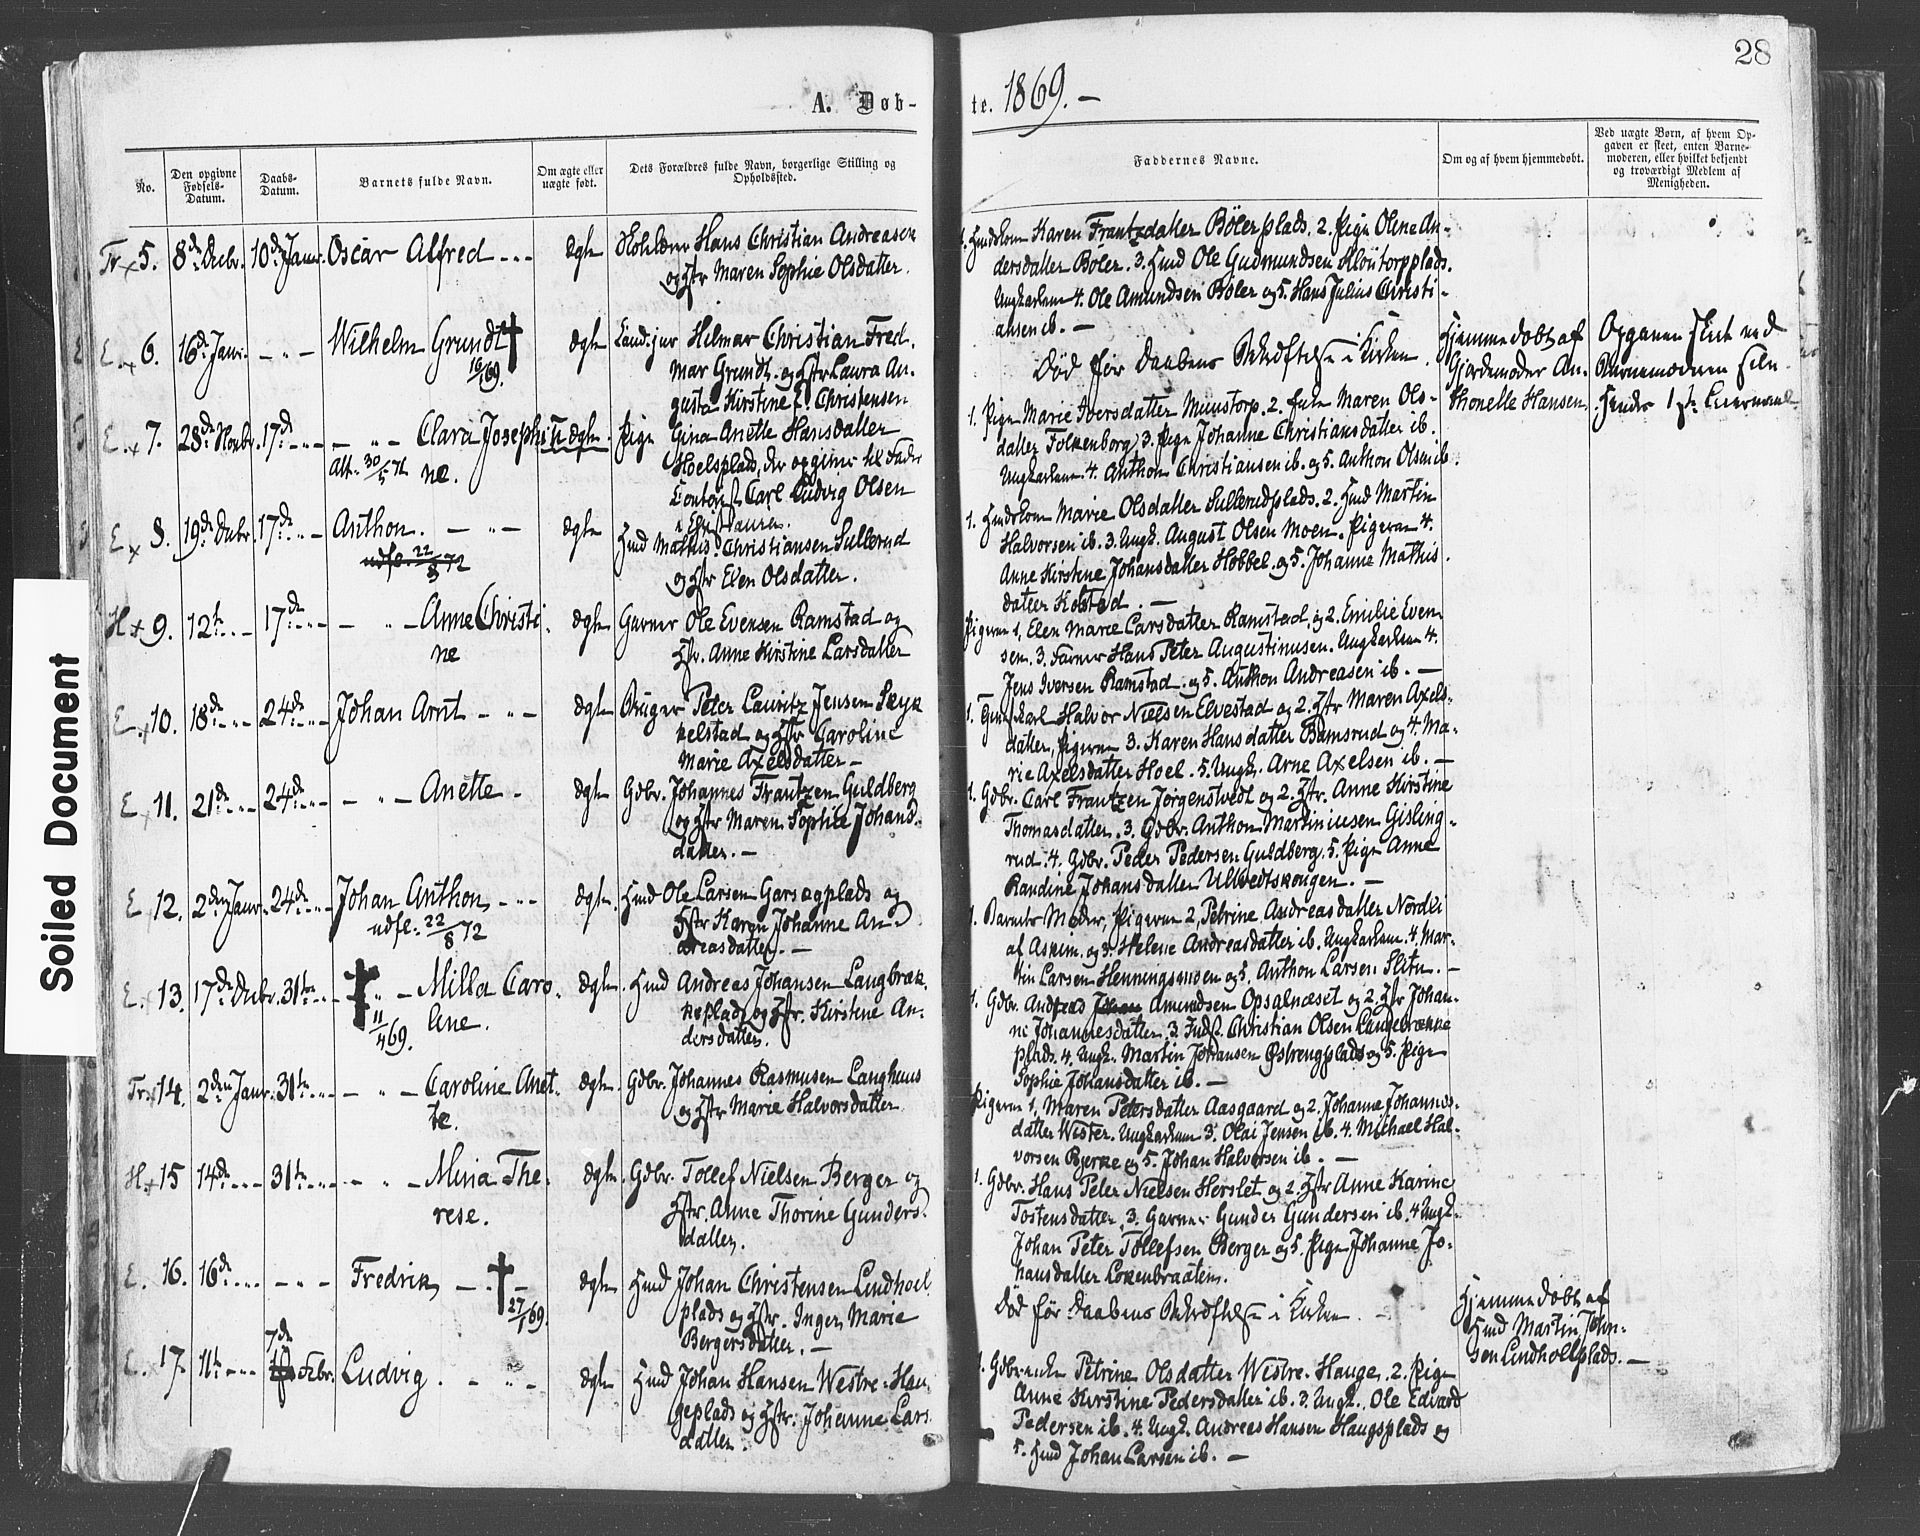 28
A. Døb-
te. 1869. —
No.
Den opgivne Fødsels-Datum.
Daabs-Datum.
Barnets fulde Navn.
Om ægte eller uægte født.
Dets Forældres fulde Navn, borgerlige Stilling og Opholdssted.
Faddernes Navne.
Om og af hvem hjemmedøbt.
Ved uægte Børn, af hvem Opgaven er skeet, enten Barnemoderen, eller hvilket bekjendt og troværdigt Medlem af Menigheden.
Tr x 5. 8de Decbr. 10de Janr. Oscar Alfred - - - ægte
Hans Christian Andreasen
og Hstr Maren Sophie Olsdatter.
Karen Frantzdatter Bölerplads. 2. Pige Oline An-
dersdatter Böler. 3. Hmd Ole Gudmundsen Klöutorpplads.
Ungkarlene 4. Ole Amundsen Böler og 5. Hans Julius Christi-
ansen ib. —
E. x 6. 16de Janr. - „ - Wilhelm Grundt † ægte
16/1 69.
Hilmar Christian Fred.
mar Grundt. og Hstr Laura Au-
gusta Kirstine f. Christensen
Död för Daabens Bekræftelse i Kirken.
Hjemmedöbt af
Gjordemoder An-
thonette Hansen
Opgaven skeet ved
Barnemoderen
E. x 7. 28de Novbr. 17de - „ - - „ - Clara Josephi
ne.
Att. 30/5 71
uægte. Pige Gina Anette Hansdatter
Hoelsplads, der opgiver til Fader
Carl Ludvig Olsen
1. Pige Marie Iversdatter Munstorp. 2. Enke Maren Ols-
datter Folkenborg, 3. Pige Johanne Christiansdatter ib.
Ungkarlene 4. Anthon Christiansen ib. og 5. Anthon Olsen ib.
E x 8. 19de Decbr. 17de - „ - Anthon. - „ - ægte
udfl. 22/8 72
Hmd Mathis Christiansen Sullerud
og Hstr Elen Olsdatter.
1. Hmdskone Marie Olsdatter Sullerudplads. 2. Hmd Martin
Halvorsen ib. 3. Ungk. August Olsen Moen. Pigerne 4.
Anne Kirstine Johansdatter Hobbel. og 5. Johanne Mathis
datter Kolstad. —
H x 9. 12te - „ - 17de - „ - - „ - Anne Christi
ne
ægte Garver Ole Evensen Ramstad og
Hstr. Anne Kirstine Larsdatter
Pigerne 1. Elen Marie Larsdatter Ramstad. og 2. Emilie Even
sen. 3. Farver Hans Peter Augustinusen. Ungkarlene 4.
Jens Iversen Ramstad. og 5. Anthon Andreasen ib. —
E. x 10. 18de - „ - 24de - „ - Johan Arnt - „ - ægte
Bruger Peter Lauritz Jensen Skyk
kelstad og Hstr Caroline
Marie Axelsdatter —
Halvor Nielsen Elvestad og 2. Hstr Maren Axels-
datter, Pigerne 3. Karen Hansdatter Bamsrud og 4. Ma-
rie Axelsdatter Hoel. 5. Ungk. Arne Axelsen ib. —
E. x 11. 21de - „ - 24de - „ - - „ - Anette - ægte
Gdbr. Johannes Frantzen Guldberg
og Hstr Maren Sophie Johans
datter. —
1. Gdbr. Carl Frantzen Jörgenstvedt og 2. Hstr. Anne Kirstine
Thomasdatter. 3. Gdbr. Anthon Martiniusen Gisling-
rud. 4. Gdbr. Peder Pedersen Guldberg. 5. Pige Anne
Randine Johansdatter Ullvedtskougen. —
E x 12. 2den Janr. 24de - „ - Johan Anthon - - - ægte.
udfl: 22/8 72
Hmd Ole Larsen Garsegplads og
Hstr Karen Johanne An
dreasdatter. —
1. Barnets Moder, Pigerne 2, Petrine Andreasdatter Nordli
af Askim. og 3. Helene Andreasdatter ib. Ungkarlene. 4. Mar-
tin Larsen Henningsmoen og 5. Anthon Larsen Slitu. —
E. x 13. 17de Decbr. 31te - „ - † „ - Milla Caro.
line.
11/4 69.
ægte. Hmd Andreas Johansen Langbræk.
keplads og Hstr. Kirstine An-
dersdatter.
1. Gdbr. Andreas Amundsen Opsalnæset og 2. Hstr Johan-
ne Johannesdatter, 3. Christian Olsen Langebrække
plads. 4. Ungk. Martin Johansen Östrengplads og 5. Pige
Sophie Johansdatter ib. —
Tr. x 14. 2den Janr. 31te - „ - - „ - Caroline Anet-
te.
ægte Gdbr. Johannes Rasmusen Langhuus
og Hstr Marie Halvorsdatter
Pigerne 1. Maren Petersdatter Aasgaard og 2. Johanne Johannes-
datter Wester. Ungkarlene 3. Olai Jensen ib. 4. Michael Hal-
vorsen Bjerke og 5. Johan Halvorsen ib. —
H x 15 14de - „ - 31te - „ - - „ - Mina The-
rese.
ægte Gdbr. Tollef Nielsen Berger og
Hstr. Anne Thorine Gunders-
datter.
1. Gdbr. Hans Peter Nielsen Herslet og 2. Hstr Anne Karine
Tostensdatter, 3. Garver Gunder Gundersen ib. 4 Ungk.
Johan Peter Tollefsen Berger og 5. Pige Johanne Jo-
hansdatter Lökenbraaten.
E. 16. 16de - „ - - „ - Fredrik - . † - ægte
27/1 69.
Hmd Johan Christensen Lindhoel
plads og Hstr. Inger Marie
Bergersdatter. —
Död för Daabens Bekræftelse i Kirken. —
Hjemmedöbt af
Hmd Martin John-
sen Lindhollplads. —
E. x 17. 11te - „ - 7de Febr. Ludvig. - „ - ægte
Hmd Johan Hansen Westre-Hau
geplads og Hstr: Johanne Lars
datter
1. Petrine Olsdatter Westre-Hauge. 2. Pige
Anne Kirstine Pedersdatter ib. 3. Ungk. Ole Edvard
Pedersen ib. 4. Ungk. Andreas Hansen Haugsplads og
5. Hmd Johan Larsen ib. —
Soiled Document